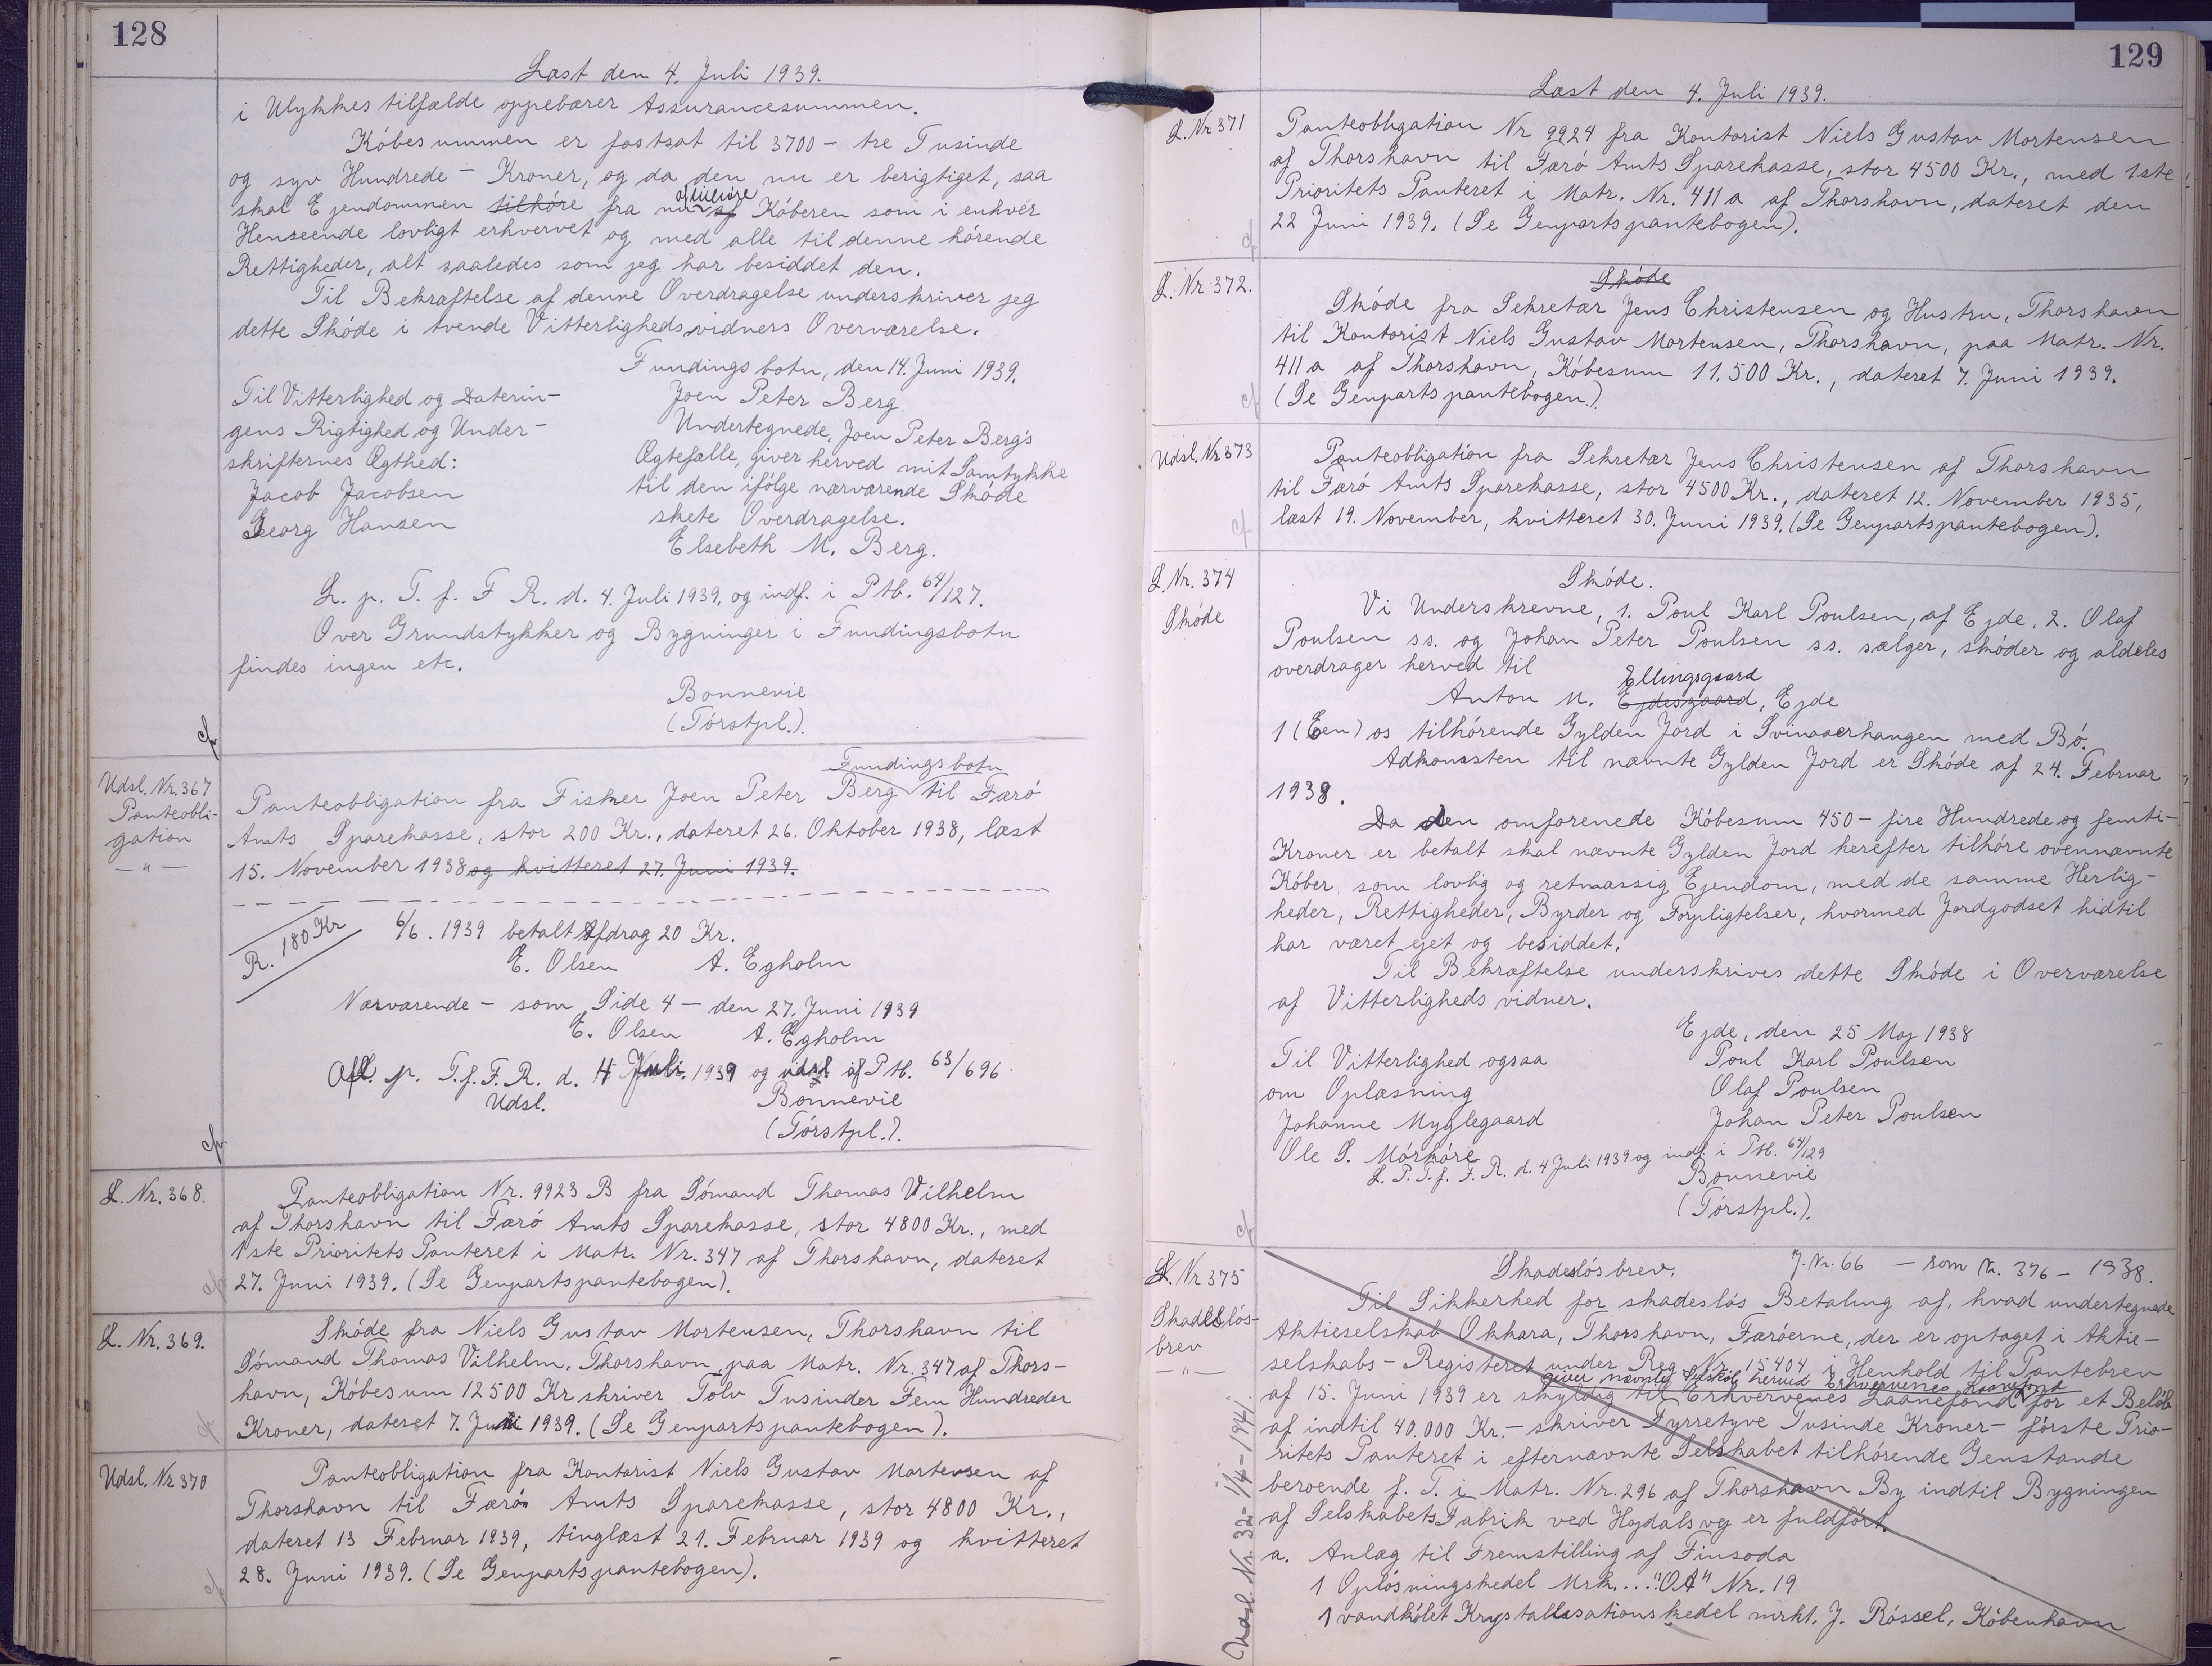 128
Læst den 4. Juli 1939.
i Ulykkestilfælde oppebærer Assurancesummen.
Köbesummen er fastsat til 3700 - tre Tusinde
og syv Hundrede - Kroner, og da den nu er berigtiget, saa
skal Ejendommen tilhöre fra nu af tilhöre Köberen som i enhver
Henseende lovligt erhvervet og med alle til denne hörende
Rettigheder, alt saaledes som jeg har besiddet den.
Til Bekræftelse af denne Overdragelse underskriver jeg
dette Sköde i tvende Vitterlighedsvidners Overværelse.
Fundingsbotn, den 14. Juni 1939.
Joen Peter Berg.
Til Vitterlighed og Daterin-
gens Rigtighed og Under-
skrifternes Ægthed:
Jacob Jacobsen
Georg Hansen
Undertegnede, Joen Peter Berg's
Ægtefælle, giver herved mit Samtykke
til den ifölge nærværende Sköde
skete Overdragelse.
Elsebeth M. Berg.
L. p. T. f. F R. d. 4. Juli 1939, og indf. i Ptb. 64/127.
Over Grundstykker og Bygninger i Fundingsbotn
findes ingen etc.
Bonnevie
(Törstpl.).
cfr
Udsl. Nr. 367
Panteobli-
gation
- " -
Fundingsbotn
Panteobligation fra Fisker Joen Peter Berg til Færö
Amts Sparekasse, stor 200 Kr., dateret 26. Oktober 1938, læst
15. November 1938 og kvitteret 27. Juni 1939.
R. 180 Kr
6/6. 1939 betalt Afdrag 20 Kr.
E. Olsen A. Egholm
Nærværende - som Side 4 - den 27. Juni 1939
E. Olsen A. Egholm
Afl. p. T. f. F. R. d. 4 Juli. 1939 og udsl. af Ptb. 63/696.
Udsl.
Bonnevie
(Törstpl.).
cfr
L. Nr. 368.
Panteobligation Nr. 9923 B fra Sömand Thomas Vilhelm
af Thorshavn til Færö Amts Sparekasse, stor 4800 Kr., med
1ste Prioritets Panteret i Matr. Nr. 347 af Thorshavn, dateret
27. Juni 1939. (Se Genpartspantebogen).
cfr
L. Nr. 369.
Sköde fra Niels Gustav Mortensen, Thorshavn til
Sömand Thomas Vilhelm, Thorshavn, paa Matr. Nr. 347 af Thors-
havn, Köbesum 12500 Kr skriver Tolv Tusinder Fem Hundreder
Kroner, dateret 7. Juni 1939. (Se Genpartspantebogen).
cfr
Udsl. Nr 370
Panteobligation fra Kontorist Niels Gustav Mortensen af
Thorshavn til Færö Amts Sparekasse, stor 4800 Kr.,
dateret 13 Februar 1939, tinglæst 21. Februar 1939 og kvitteret
28. Juni 1939. (Se Genpartspantebogen).
cfr
129
Læst den 4. Juli 1939.
L. Nr 371
Panteobligation Nr 9924 fra Kontorist Niels Gustav Mortensen
af Thorshavn til Færö Amts Sparekasse, stor 4500 Kr., med 1ste
Prioritets Panteret i Matr. Nr. 411 a af Thorshavn, dateret den
22 Juni 1939. (Se Genpartspantebogen).
cfr
L. Nr 372.
Sköde
Sköde fra Sekretær Jens Christensen og Hustru, Thorshavn
til Kontorist Niels Gustav Mortensen, Thorshavn, paa Matr. Nr.
411 a af Thorshavn, Köbesum 11.500 Kr., dateret 7. Juni 1939.
(Se Genpartspantebogen.)
cfr
Udsl. Nr 373
Panteobligation fra Sekretær Jens Christensen af Thorshavn
til Færö Amts Sparekasse, stor 4500 Kr., dateret 12. November 1935,
læst 19. November, kvitteret 30. Juni 1939. (Se Genpartspantebogen).
cfr
L. Nr. 374
Sköde
Sköde.
Vi Underskrevne, 1. Poul Karl Poulsen, af Ejde, 2. Olaf
Poulsen ss. og Johan Peter Poulsen ss. sælger, sköder og aldeles
overdrager herved til
Ellingsgaard
Anton M. Ejdesgaard, Ejde
1 (Een) os tilhörende Gylden Jord i Svinaaerhangen med Bö.
Adkomsten til nævnte Gylden Jord er Sköde af 24. Februar
1938.
Da den omforenede Köbesum 450 - fire Hundrede og femti -
Kroner er betalt skal nævnte Gylden Jord herefter tilhöre ovennævnte
Köber, som lovlig og retmæssig Ejendom, med de samme Herlig-
heder, Rettigheder, Byrder og Forpligtelser, hvormed Jordgodset hidtil
har været ejet og besiddet.
Til Bekræftelse underskrives dette Sköde i Overværelse
af Vitterligheds vidner.
Ejde, den 25 Maj 1938
Til Vitterlighed ogsaa
om Oplæsning
Johanne Myglegaard
Ole S. Mörköre
Poul Karl Poulsen
Olaf Poulsen
Johan Peter Poulsen
L. P. T. f. F. R. d. 4 Juli 1939 og indf. i Ptb. 64/129
Bonnevie
(Törstpl.).
cfr
L. Nr 375
Skadeslös-
brev
- " -
Udsl. Nr. 32 - 1/4 - 1941.
Skadeslösbrev. J. Nr. 66 - som Nr. 376 - 1938.
Til Sikkerhed for skadeslös Betaling af, hvad undertegnede
Aktieselskab Okkara, Thorshavn, Færöerne, der er optaget i Aktie-
selskabs-Registeret under Reg. Nr. 15404 i Henhold til Pantebrev
giver nævnte Selskab herved Erhvervenes Laanefond
af 15. Juni 1939 er skyldig til Erhvervenes Laanefond for et Belöb
af indtil 40.000 Kr. - skriver Fyrretyve Tusinde Kroner - förste Prio-
ritets Panteret i efternævnte Selskabet tilhörende Genstande
beroende f. T. i Matr. Nr. 296 af Thorshavn By indtil Bygningen
af Selskabets Fabrik ved Hojdalsvej er fuldfört.
a. Anlæg til Fremstilling af Finsoda
1 Oplösningskedel Mrk.... "OA" Nr. 19
1 vandkölet Krystallisationskedel mrkt. J. Rössel, Köbenhavn